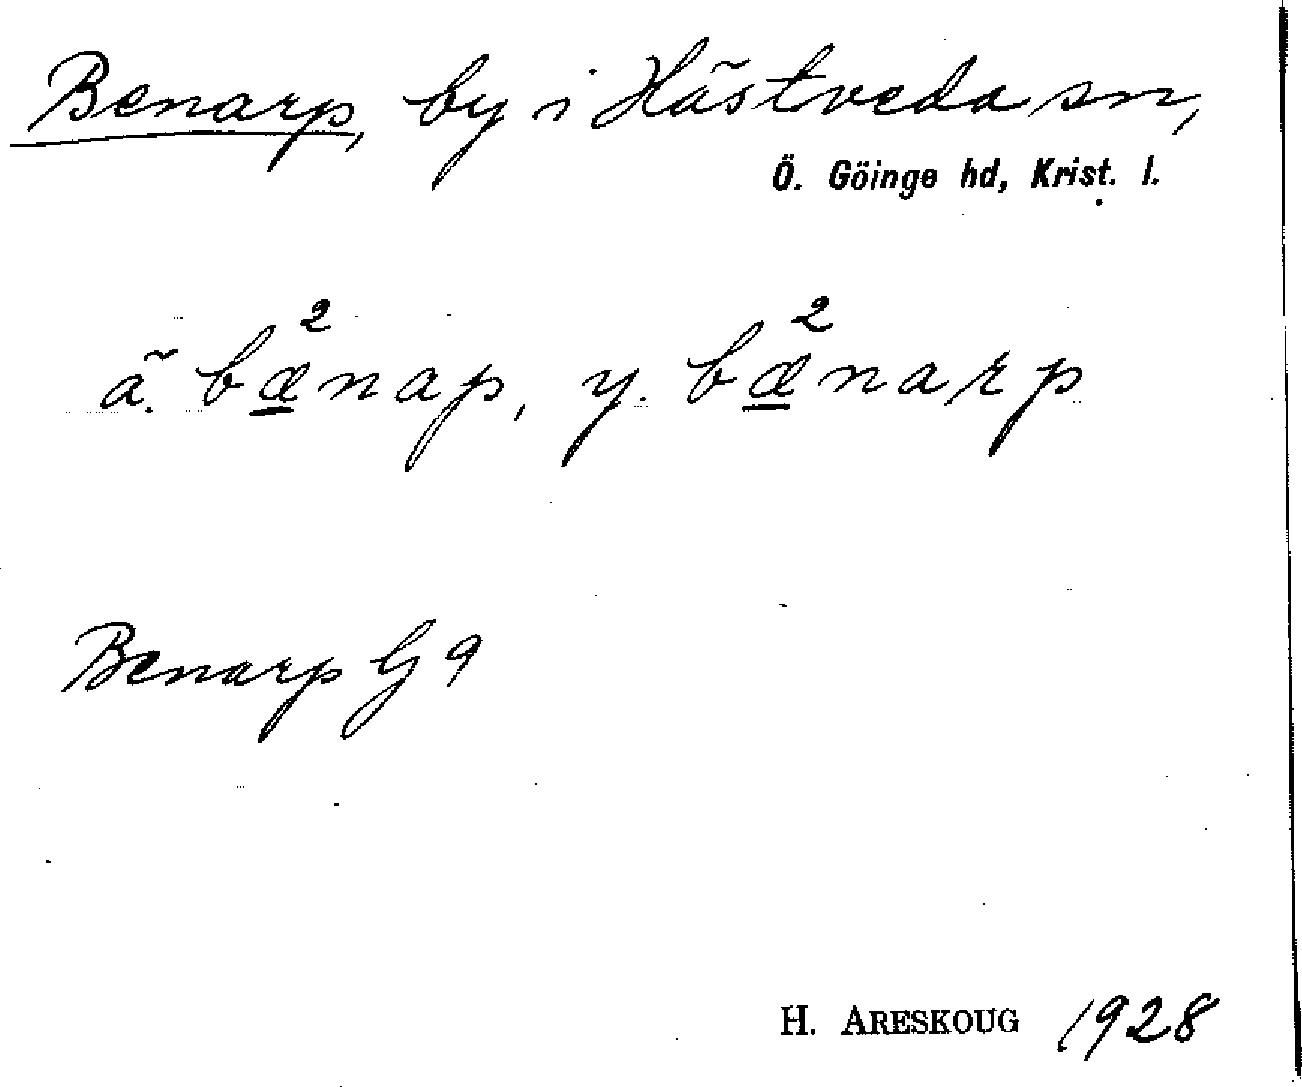 Benarp, by i Hästveda sn,
Ö. Göinge hd, Krist. l.
ä. bæ̲²nap, y. bæ̲²narp
Benarp G 9
H. ARESKOUG 1928